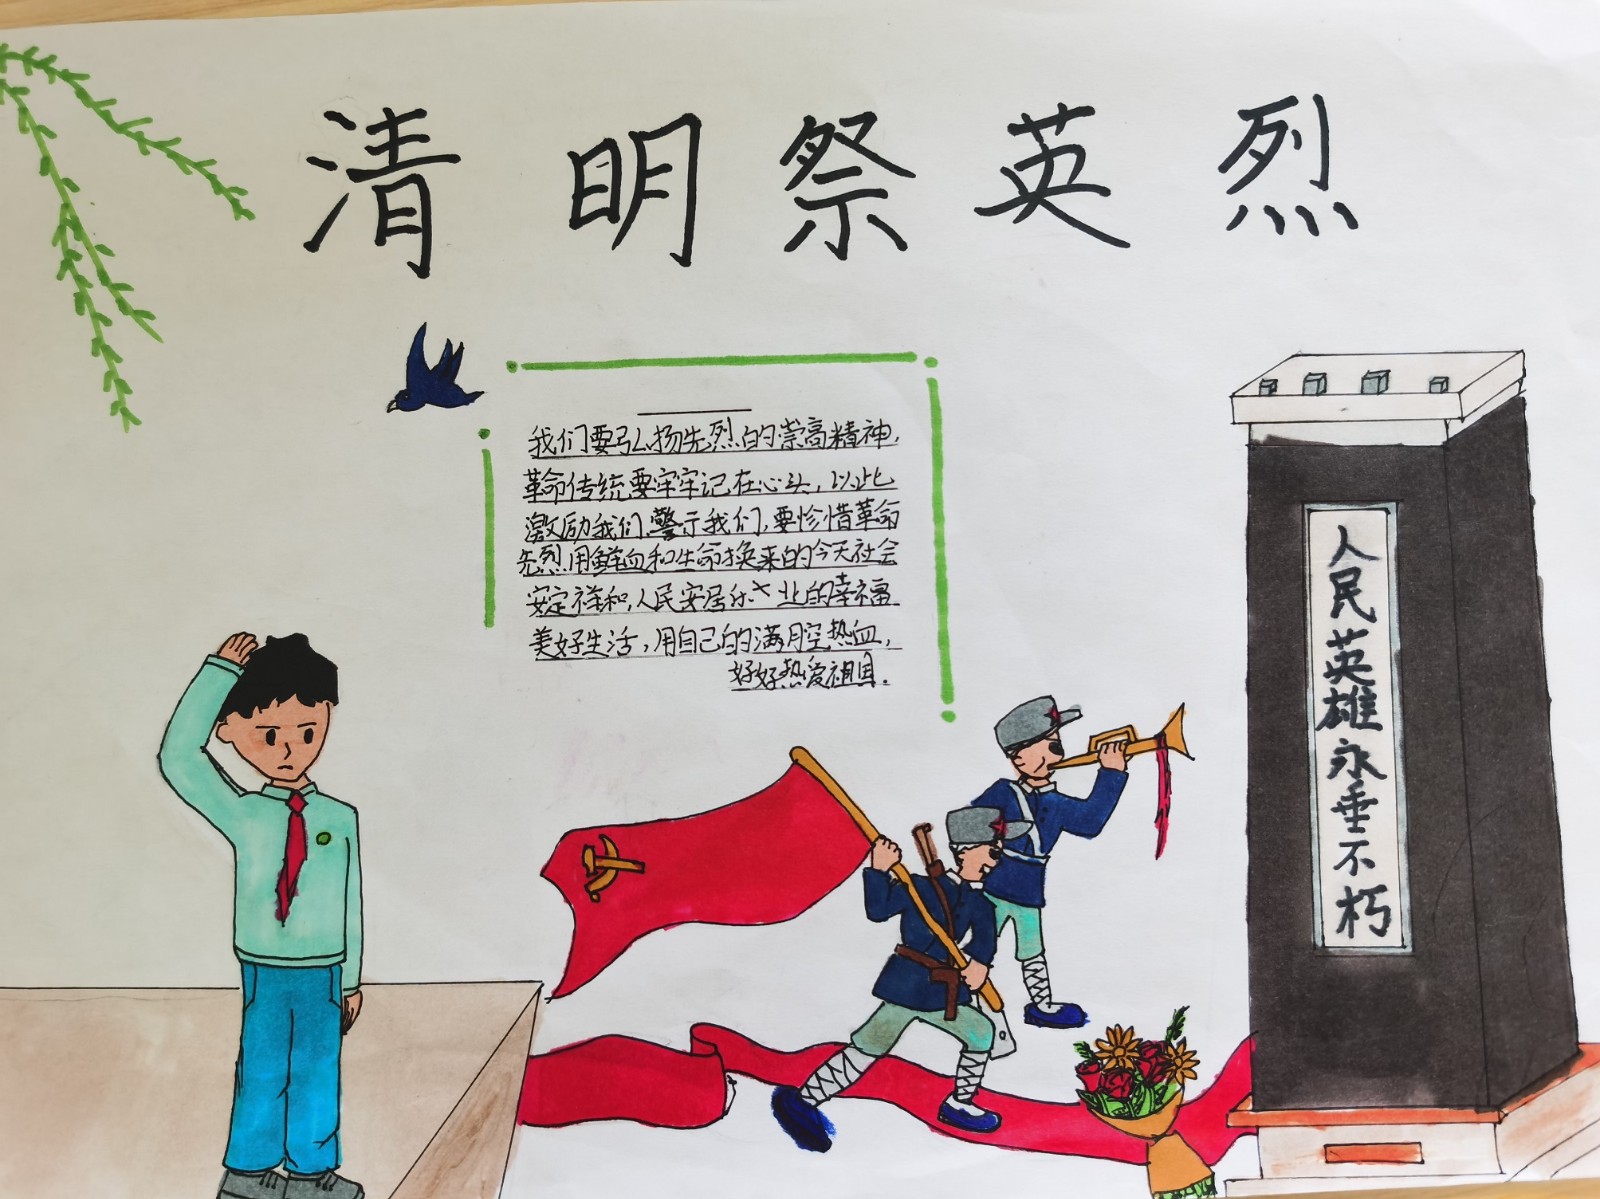 清明祭英烈
我们要弘扬先烈的崇高精神，
革命传统要牢牢记在心头，以此
激励我们，警示我们，要惜革命
先烈用鲜血和生命换来的今天社会
安定祥和，人民安居乐业的幸福
美好生活，用自己的满腔热血，
好好热爱祖国．
人民英雄永垂不朽